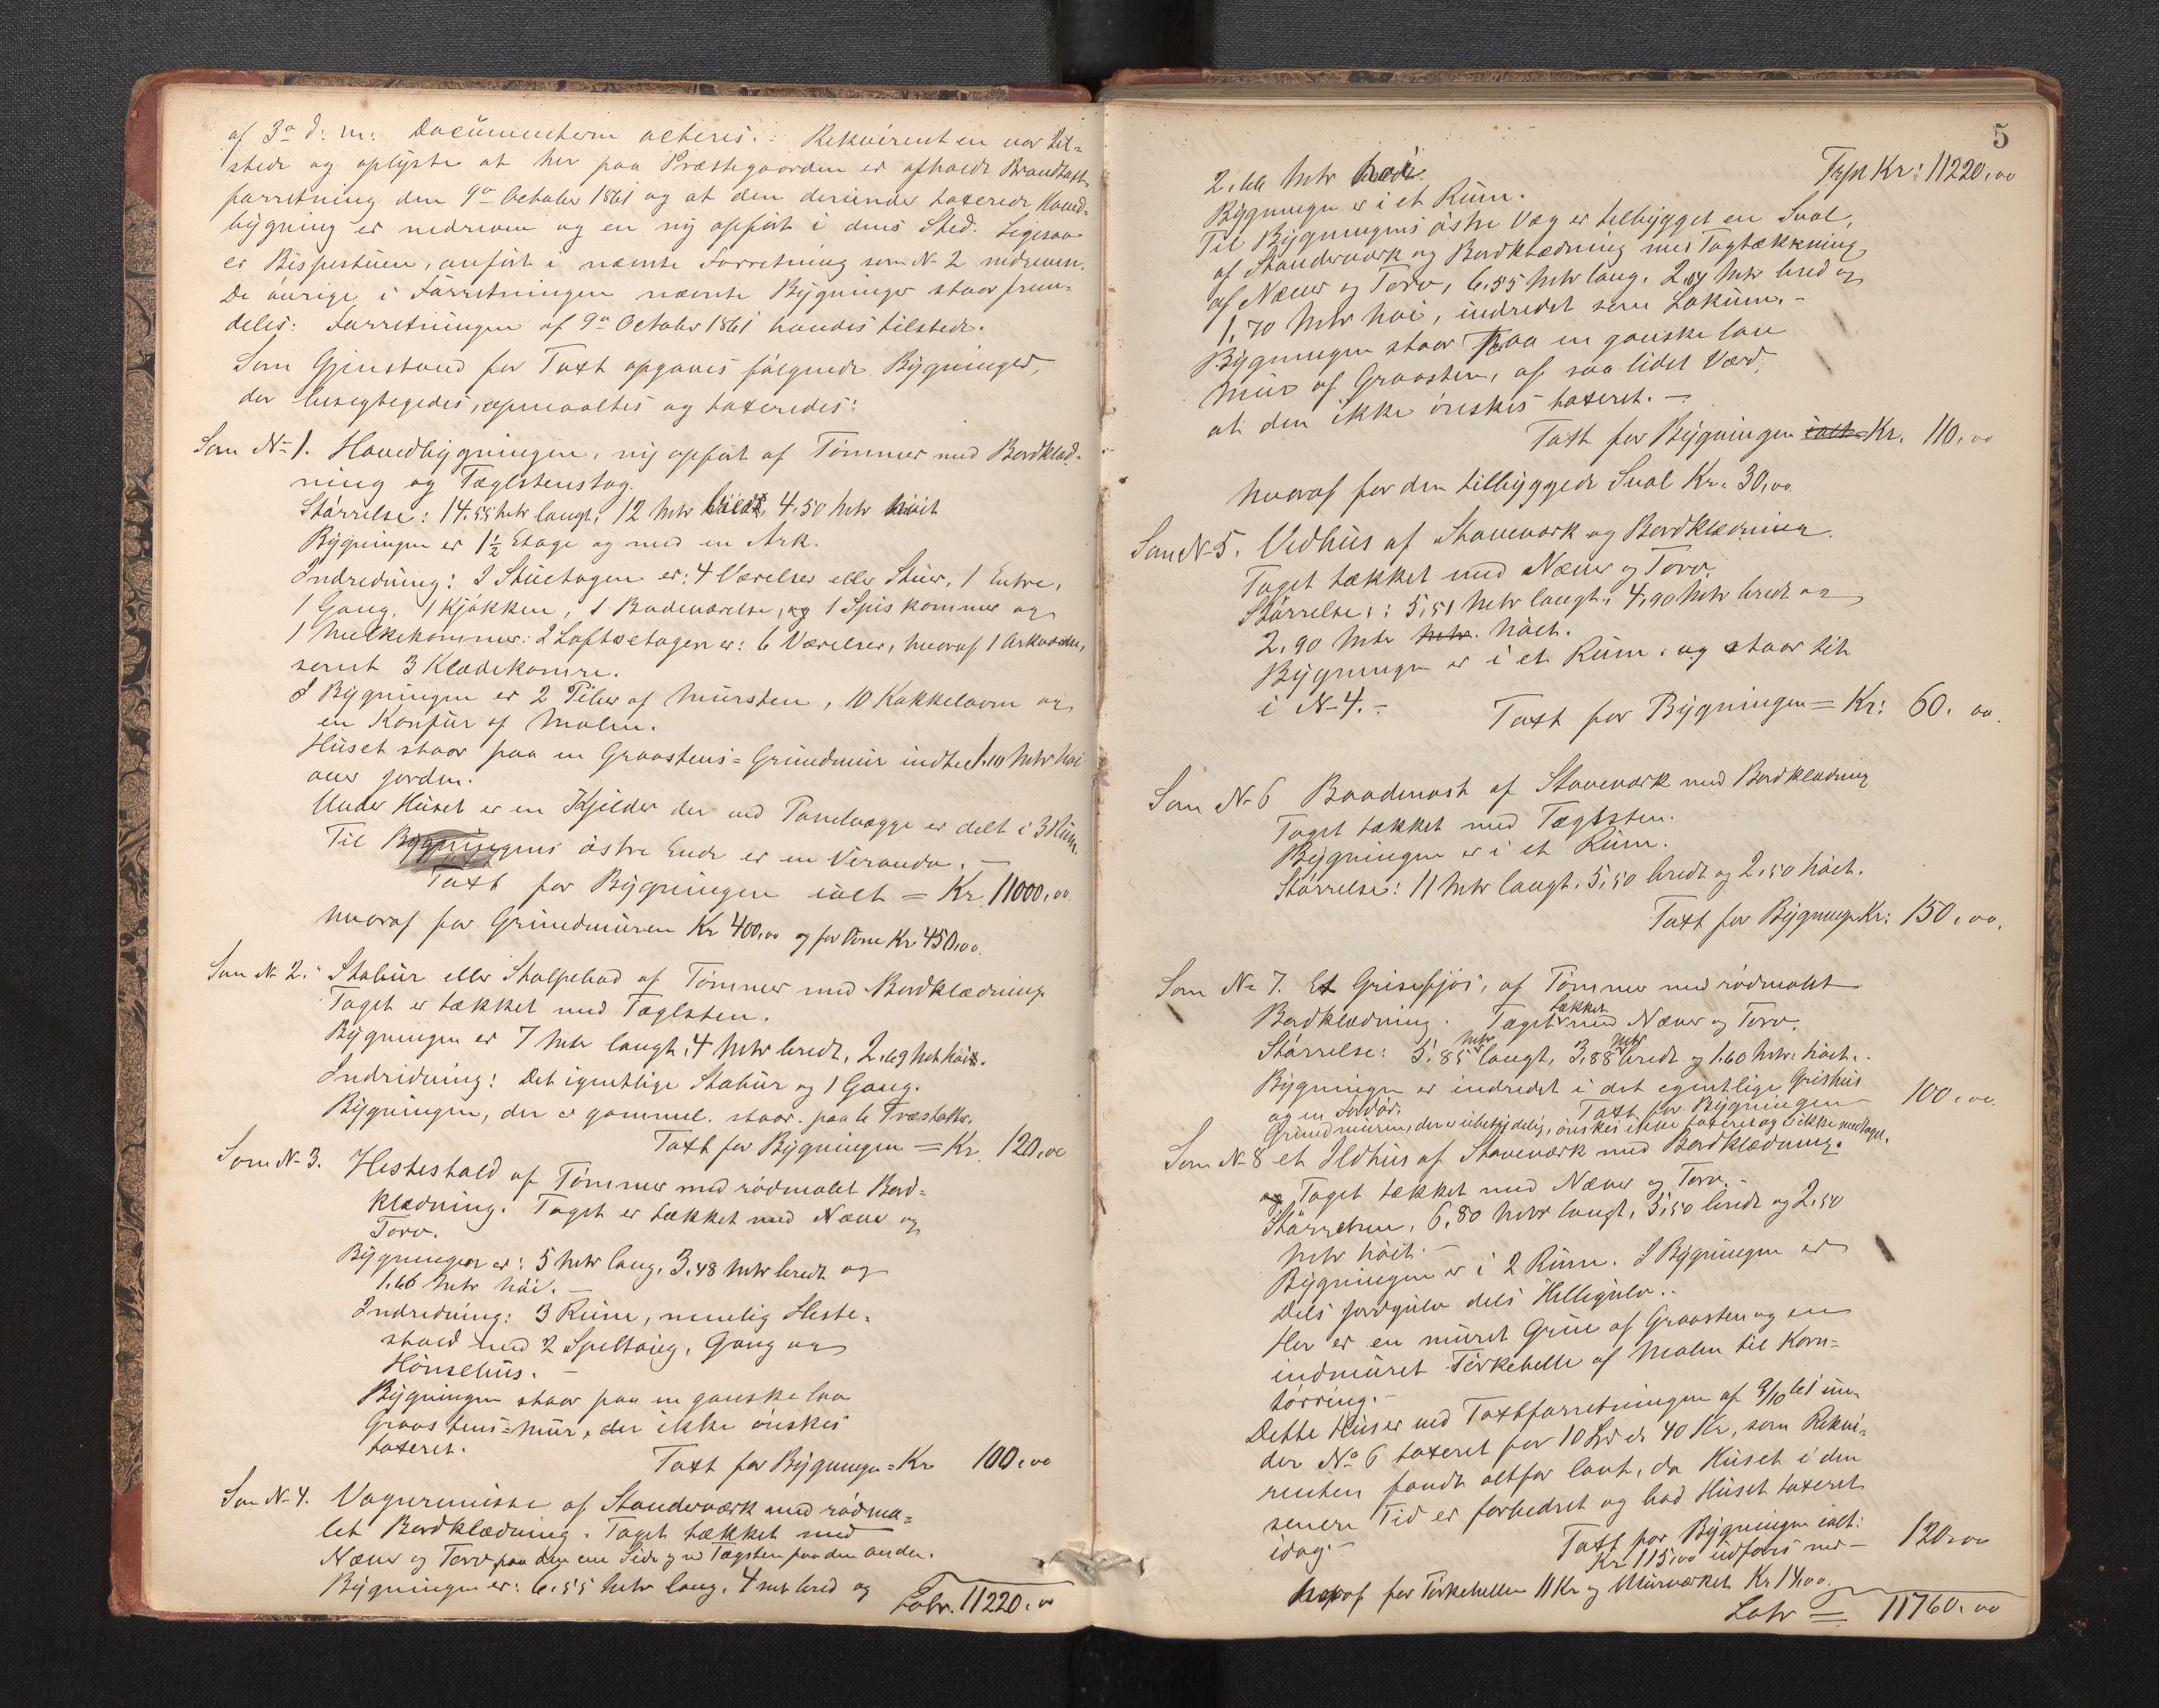 af 3º d: m: Documentern acteres.: Rekvirenten var til=
stede og oplyste at her paa Præstegaarden er afholdt Brandtaxt
forretning den 9de October 1861 og at den derunder taxerede Hoved=
bygning er nedreven og en ny opført i dens Sted. Ligesaa
er Bispestuen, anført i nævnte Forretning som No 2 nedreven.
De øvrige i Forretningen nævnte Bygninger staar frem=
deles: Forretningen af 9de October 1861 haudes tilstede.
Som Gjenstand for Taxt opgaves følgende Bygninger,
der besigtigedes, opmaaltes og taxeredes:
Som No 1. Hovedbygningen, ny opført af Tømmer med Bordklæd=
ning og Taglstenstag.
Størrelse: 14,55 Metr langt, 12 Metr bredt, 4,50 Metr høit
Bygningen er 1½ Etage og med en Ark.
Indredning: I Stuetagen er: 4 Værelser eller Stuer, 1 Entre,
1 Gang, 1 Kjøkken, 1 Badeværelse, og 1 Spiskammer og
1 Melkekammer: I Loftsetagen er: 6 Værelser, hvoraf 1 Arkværelse,
samt 3 Klædekamre.
I Bygningen er 2 Piber af Mursten, 10 Kakkelovne og
en Komfur af Malm.
Huset staar paa en Graastens=Grundmur indtil 1.10 Metr høi
over Jorden.
Under Huset er en Kjelder der ved Panelvægge er delt i 3 Rum.
Til Bygningens østre Ende er en Veranda. —
Taxt for Bygningen ialt = Kr. 11000,00
hvoraf for Grundmuren Kr 400,00 og for Ovne Kr 450,00.
Som No 2. Stabur eller Stolpebod af Tømmer med Bordklædning
Taget er tækket med Taglsten.
Bygningen er 7 Metr langt, 4 Metr bredt, 2,69 Met høit.
Indridning: Det igentlige Stabur og 1 Gang.
Bygningen, der er gammel, staar paa 6 Træstabber.
Taxt for Bygningen = Kr. 120,00
Som No 3. Hestestald af Tømmer med rødmalet Bord=
klædning. Taget er tækket med Næver og
Torv.
Bygningen er: 5 Metr lang, 3,48 Metr bredt og
1,66 Metr høi. —
Indredning: 3 Rum, nemlig Heste=
stald med 2 Spiltaug, Gang og
Hønsehus. —
Bygningen staar paa en ganske lav
Graastens=Mur, der ikke ønskes
taxeret.
Taxt for Bygningen = Kr 100,00
Som No 4. Vognremisse af Standerværk med rødma=
let Bordklædning. Taget tækket med
Næver og Torv paa den ene Side og ved Taglsten paa den anden.
Bygningen er: 6,55 Metr lang, 4 Met bred og
Latr. 11220,00
5
Trpt Kr: 11220,00
2,66 Metr høi.
Bygningen er i et Rum.
Til Bygningens østre Væg er tilbygget en Sval,
af Standerværk og Bordklædning med Tagtækkning
af Næver og Torv, 6,55 Metr lang, 2,04 Metr bred og
1,70 Metr høi, indredet som Lokum. —
Bygningen staar paa en ganske lav
Mur af Graasten, af saa lidet Værd,
at den ikke ønskes taxeret. —
Taxt for Bygningen ialt = Kr. 110,00
hvoraf for den tilbyggede Sval Kr. 30,00
Som No 5. Vedhus af Staveværk og Bordklædning.
Taget tækket med Næver og Torv.
Størrelse: 5,51 Metr langt, 4,90 Metr bredt og
2,90 Metr Metr. høit.
Bygningen er i et Rum, og staar tilk
i No 4. —
Taxt for Bygningen = Kr: 60, 00.
Som No 6 Baadenøst af Staveværk med Bordklædning
Taget tækket med Taglsten.
Bygningen er i et Rum.
Størrelse: 11 Metr langt, 5,50 bredt og 2,50 høit.
Taxt for Bygningen Kr: 150,00.
Som No 7. Et Grisefjøs, af Tømmer med rødmalet
Bordklædning. Taget tækket med Næver og Torv.
Størrelse: 5,85 Metr langt, 3,88 Metr bredt og 1,60 Metr: høit.
Bygningen er indredet i det egentlige Grishus
og en Fordør. Taxt for Bygningen 100,00.
Grundmuren, der er ubetydelig, ønskes ikke taxeret og er ikke medtaget.
Som No 8 et Ildhus af Staveværk med Bordklædning.
og Taget tækket med Næver og Torv. —
Størrelsen, 6,80 Metr langt, 5,50 bredt og 2,50
Metr høit. —
Bygningen er i 2 Rum. I Bygningen er
Dels Jordgulv dels Hellegulv. —
Her er en muret Grue af Graasten og en
indmuret Tørkehelle af Malm til Korn=
tørring. —
Dette Hus er ved Taxtforretningen af 9/10 61 un=
der No 6 taxeret for 10 Spd er 40 Kr, som Rekvi=
renten fandt altfor lavt, da Huset i den
senere Tid er forbedret og bad Huset taxeret
idag. —
Taxt for Bygningen ialt:
Kr. 115,00 udføres med — 120,00
hvoraf for Tørkehellen 11 Kr og Murværket Kr 14,00.
Latr = 11760,00